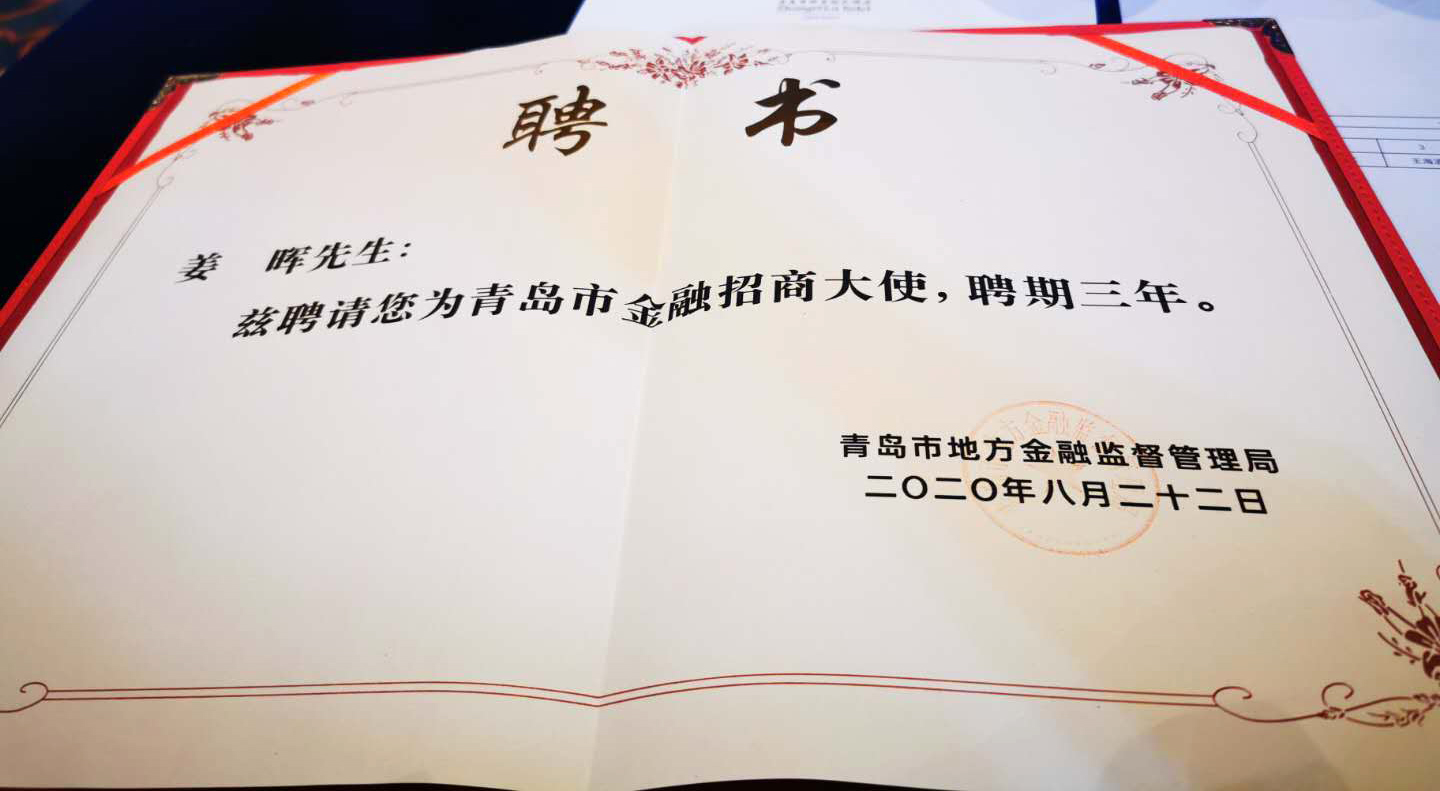 聘 书
姜 晖先生:
兹聘请您为青岛市金融招商大使,聘期三年。
青岛市地方金融监督管理局
二〇二〇年八月二十二日
Shangri-La hotel
3
王海